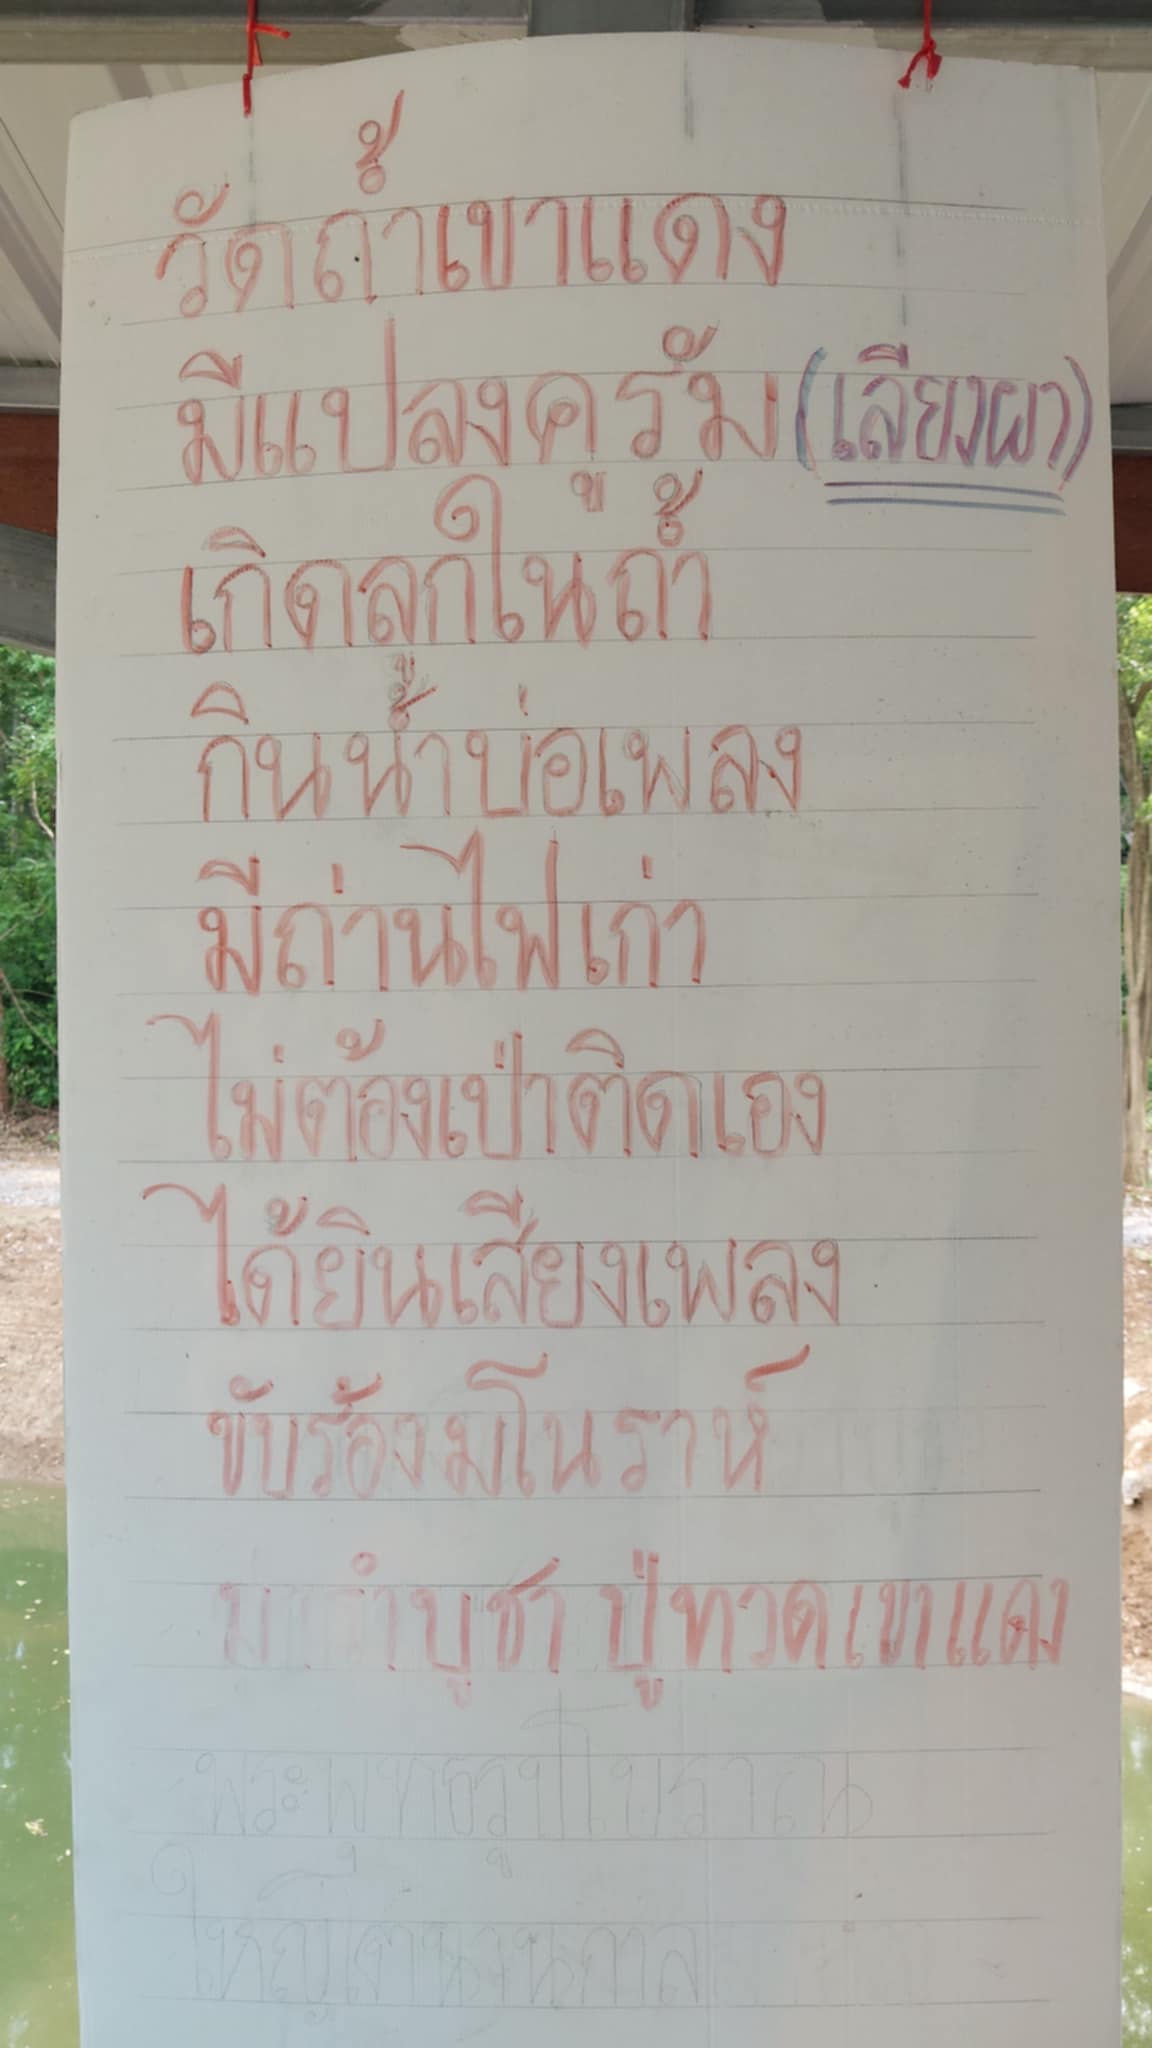 วัดถ้ำเขาแดง
มีแปลงคูรั้ม (เลียงผา)
เกิดลูกในถ้ำ
กินน้ำบ่อเพลง
มีถ่านไฟเก่า
ไม่ต้องเป่าติดเอง
ได้ยินเสียงเพลง
ขับร้องมโนราห์
มารำบูชา ปู่ทวดเขาแดง
พระพุทธรูปโบราณ